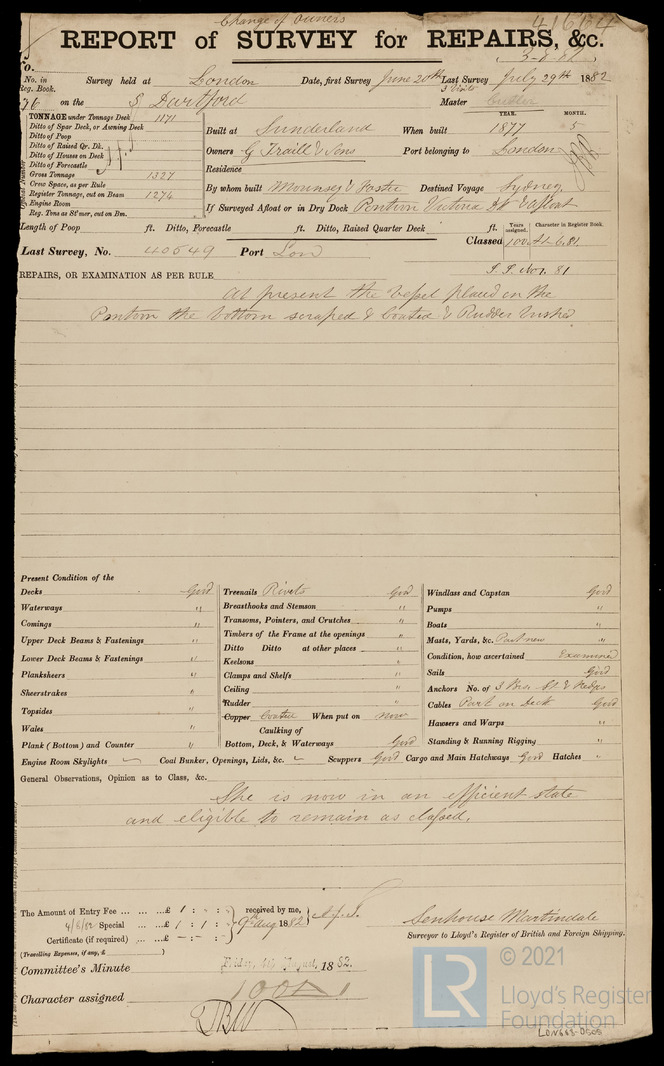 Change of Owners
REPORT of SURVEY for REPAIRS, &c.
No. in Reg. Book. Survey held at London Date, first Survey June 20th Last Survey July 29th 1882
on the S Dartford Master
TONNAGE under Tonnage Deck 1171
Ditto of Spar Deck, or Awning Deck
Ditto of Poop
Ditto of Raised Qr. Dk.
Ditto of Houses on Deck
Ditto of Forecastle
Gross Tonnage 1327
Crew Space, as per Rule
Register Tonnage, cut on Beam 1274
Engine Room
Reg. Tons as St'mer, cut on Bm.
YEAR. MONTH.
Built at Sunderland When built 1877 5
Owners G Traill & Sons Port belonging to London
Residence
By whom built Mounsey & Foster Destined Voyage Sydney
If Surveyed Afloat or in Dry Dock Pontoon Victoria Dk & afloat
Length of Poop ft. Ditto, Forecastle ft. Ditto, Raised Quarter Deck ft.
Years assigned. Character in Register Book.
Classed 100 A1 6.81
Last Survey, No. 40649 Port Lon
S.S. No 1. 81
REPAIRS, OR EXAMINATION AS PER RULE
At present the vessel placed on the
Pontoon the bottom scraped & Coated & Rudder
Present Condition of the
Decks Good
Waterways "
Comings "
Upper Deck Beams & Fastenings "
Lower Deck Beams & Fastenings "
Planksheers "
Sheerstrakes "
Topsides "
Wales "
Plank (Bottom) and Counter "
Treenails Rivets Good
Breasthooks and Stemson "
Transoms, Pointers, and Crutches "
Timbers of the Frame at the openings "
Ditto Ditto at other places "
Keelsons "
Clamps and Shelfs "
Ceiling "
Rudder "
Copper Coated When put on now
Caulking of
Bottom, Deck, & Waterways Good
Windlass and Capstan Good
Pumps "
Boats "
Masts, Yards, &c. Part new "
Condition, how ascertained Examined
Sails Good
Anchors No. of 3 Bow St & Kedges
Cables Part on Deck Good
Hawsers and Warps "
Standing & Running Rigging "
Engine Room Skylights Coal Bunker, Openings, Lids, &c. Scuppers Good Cargo and Main Hatchways Good Hatches "
General Observations, Opinion as to Class, &c.
She is now in an efficient state
and eligible to remain as classed.
The Amount of Entry Fee £ 1 : - : - received by me,
4/8/82 Special £ 1 : 1 : - 9th Aug 1882
Certificate (if required) £ - : - : -
(Travelling Expenses, if any, £ )
Senhouse Martindale
Surveyor to Lloyd's Register of British and Foreign Shipping.
Committee's Minute Friday, 4th August, 1882.
Character assigned 100A1
© 2021
LR
Lloyd's Register
Foundation
LON668-0605